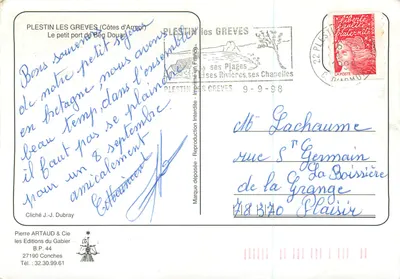 PLESTIN LES GREVES (Côtes d'Armor)
Le petit port de Beg Douar
Bons souvenirs
de notre petit séjour
en bretagne nous avons
beau temp dans l'ensemble
il faut pas se plaindre
pour un 8 septembre
amicalement
Cliché J.-J. Dubray
Pierre ARTAUD & Cie
les Editions du Gabier
B.P. 44
27190 Conches
Tél. : 32.30.99.61
Marque déposée - Reproduction Interdite
PLESTIN les GREVES
ses Plages
ses Rivières, ses Chapelles
PLESTIN LES GREVES 9-9-98
22 PLESTIN
liberté égalité fraternité
M. Lachaume
rue St Germain
La Boissière
de la Grange
78370 Plaisir